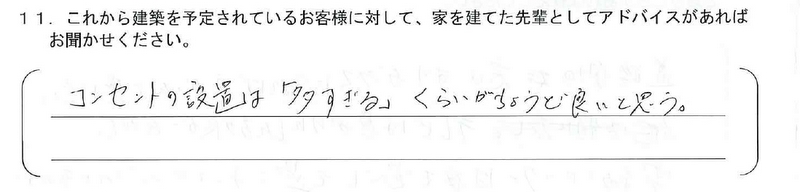 １１．これから建築を予定されているお客様に対して、家を建てた先輩としてアドバイスがあれば
お聞かせください。
コンセントの設置は「多すぎる」くらいがちょうど良いと思う。